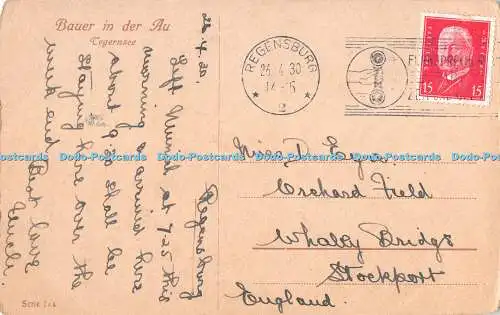 Bauer in der Au
Tegernsee
26.4.30.
Regensburg
Left Munich at 7.25 this
morning & arrived here
about 9.30 shall be
staying here over the
week end Best love
REGENSBURG
26. 4. 30
2
15 15
Miss D.
Orchard Field
Whaley Bridge
Stockport
England.
Serie
Dodo-Postcards Dodo-Postcards Dodo-Postcards Dodo-Postcards Dodo-Postcards